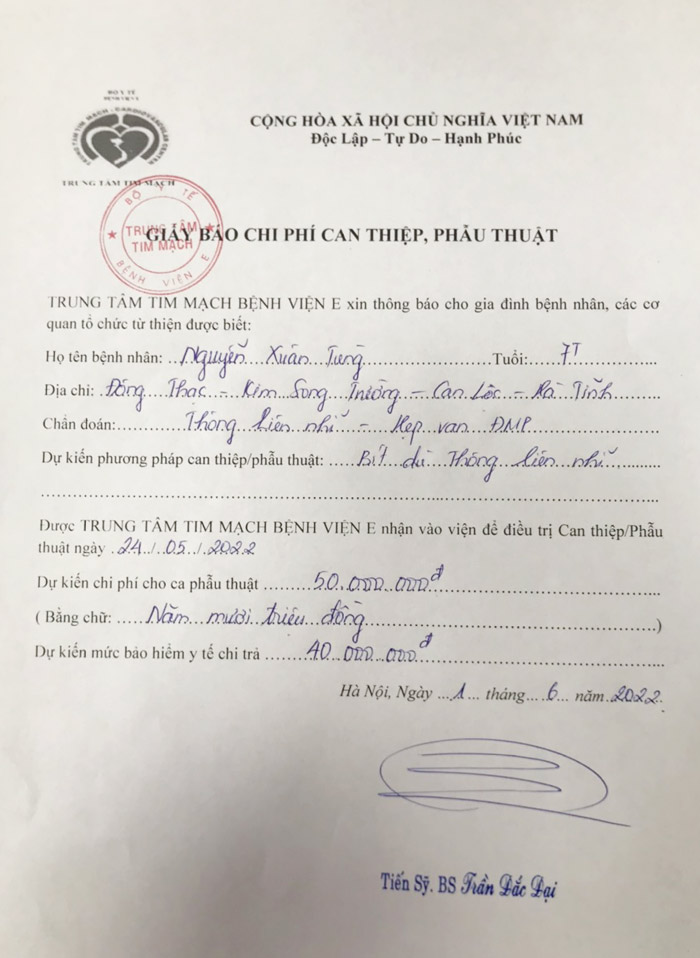 BỘ Y TẾ
BỆNH VIỆN E
TRUNG TÂM TIM MẠCH - CARDIOVASCULAR CENTER
TRUNG TÂM TIM MẠCH
CỘNG HÒA XÃ HỘI CHỦ NGHĨA VIỆT NAM
Độc Lập – Tự Do – Hạnh Phúc
BỘ Y TẾ
TRUNG TÂM
TIM MẠCH
BỆNH VIỆN E
GIẤY BÁO CHI PHÍ CAN THIỆP, PHẪU THUẬT
TRUNG TÂM TIM MẠCH BỆNH VIỆN E xin thông báo cho gia đình bệnh nhân, các cơ
quan tổ chức từ thiện được biết:
Họ tên bệnh nhân: Nguyễn Xuân Tùng Tuổi: 7T
Địa chỉ: Đông Thạc - Kim Song Trường - Can Lộc - Hà Tĩnh
Chẩn đoán: Thông liên nhĩ - Hẹp van ĐMP
Dự kiến phương pháp can thiệp/phẫu thuật: Bít dù Thông liên nhĩ
Được TRUNG TÂM TIM MẠCH BỆNH VIỆN E nhận vào viện để điều trị Can thiệp/Phẫu
thuật ngày 24/05/2022
Dự kiến chi phí cho ca phẫu thuật 50.000.000đ
( Bằng chữ: Năm mươi triệu đồng )
Dự kiến mức bảo hiểm y tế chi trả 40.000.000đ
Hà Nội, Ngày 1 tháng 6 năm 2022
Tiến Sỹ. BS Trần Đắc Đại